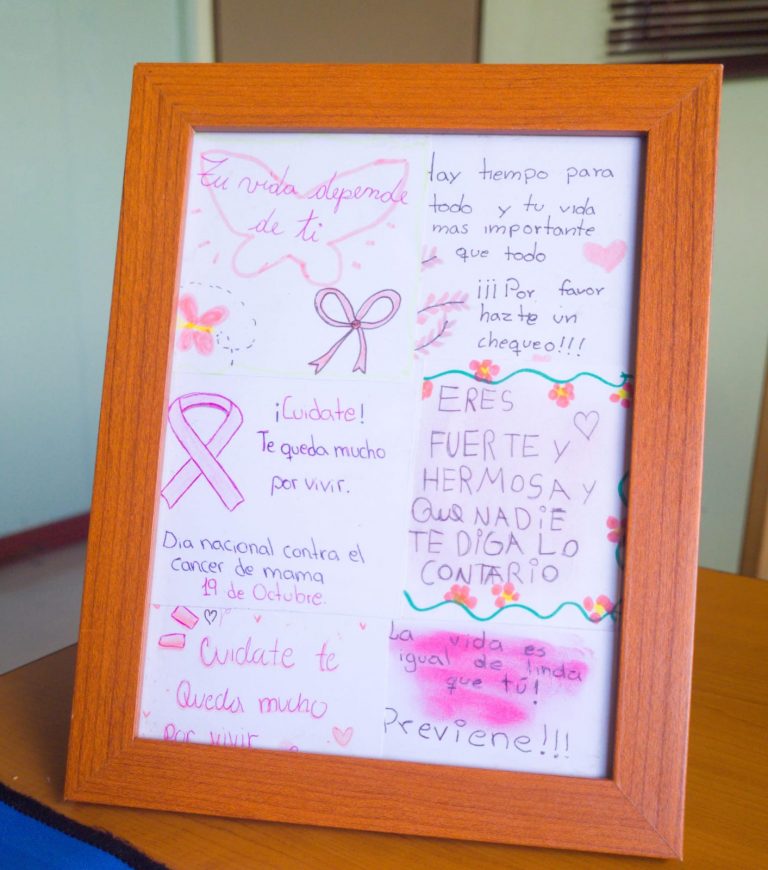 Tu vida depende
de ti
Hay tiempo para
todo y tu vida
mas importante
que todo
¡¡¡Por favor
hazte un
chequeo!!!
¡Cuidate!
Te queda mucho
por vivir.
Dia nacional contra el
cancer de mama
19 de Octubre.
ERES
FUERTE Y
HERMOSA Y
QUE NADIE
TE DIGA LO
CONTARIO
Cuidate te
Queda mucho
Por vivir
La vida es
igual de linda
que tú!
Previene!!!